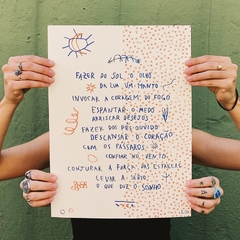 FAZER DO SOL, O OLHO
DA LUA, UM MANTO
INVOCAR A CORAGEM DO FOGO
ESPANTAR O MEDO
ARRISCAR DESEJOS
FAZER DOS PÉS OUVIDO
DESCANSAR O CORAÇÃO
COM OS PÁSSAROS
CONFIAR NO VENTO
CONJURAR A FORÇA DAS ESTRELAS
LEVAR A SÉRIO
O QUE DIZ O SONHO